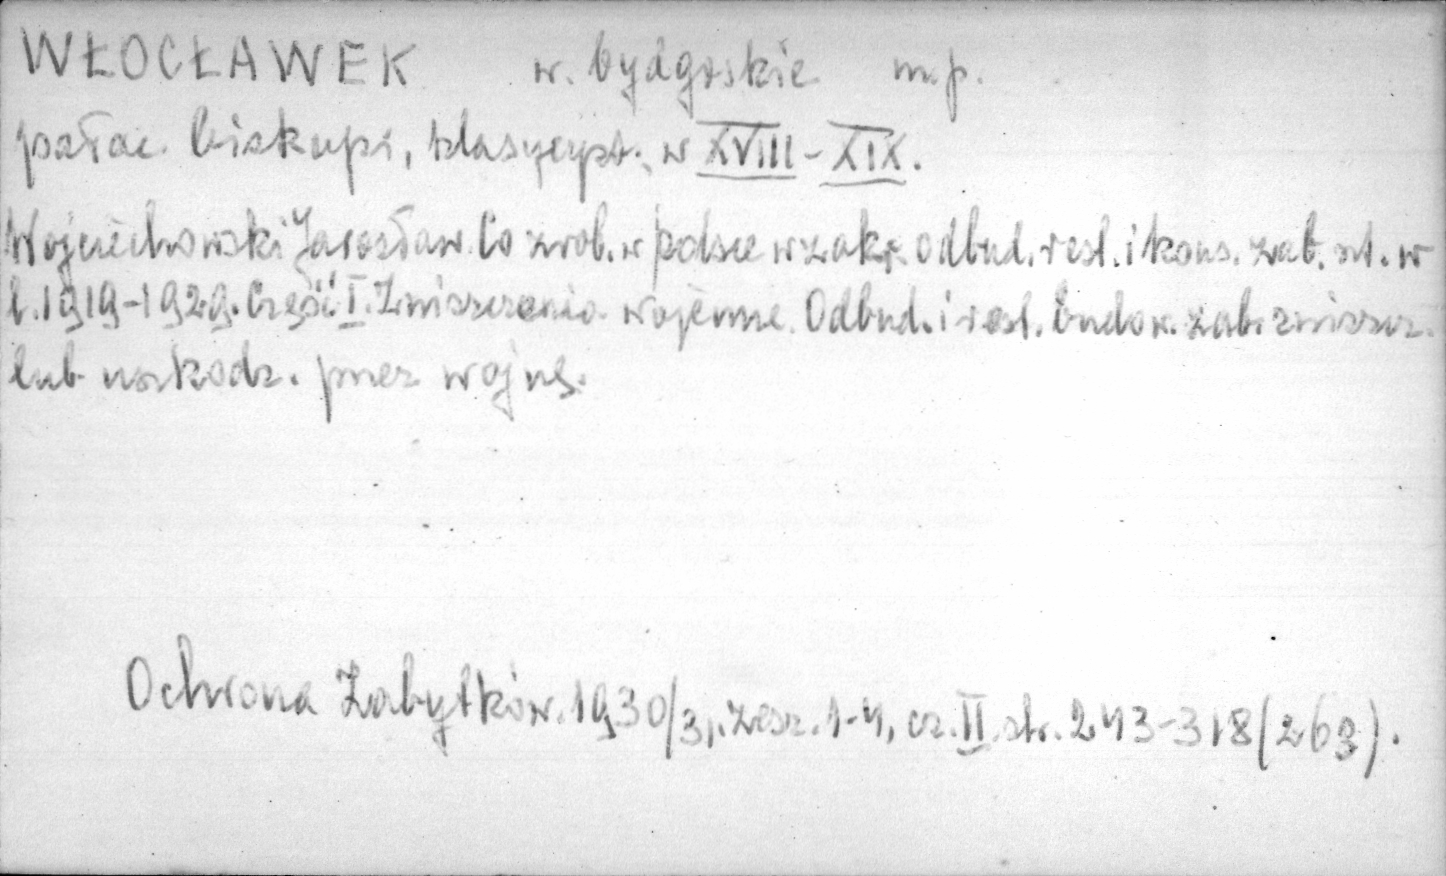 WŁOCŁAWEK w. bydgoskie m.p.
pałac biskupi, klasycyst., w XVIII-XIX.
Wojciechowski Jarosław. Co zrob. w polsce w zakr. odbud. rest. i kons. zab. szt. w
l. 1919-1929. Część I. Zniszczenia wojenne. Odbud. i rest. budow. zab. zniszcz.
lub uszkodz. przez wojnę.
Ochrona Zabytków. 1930/31. zesz. 1-4, cz. II. str. 243-318 (263).